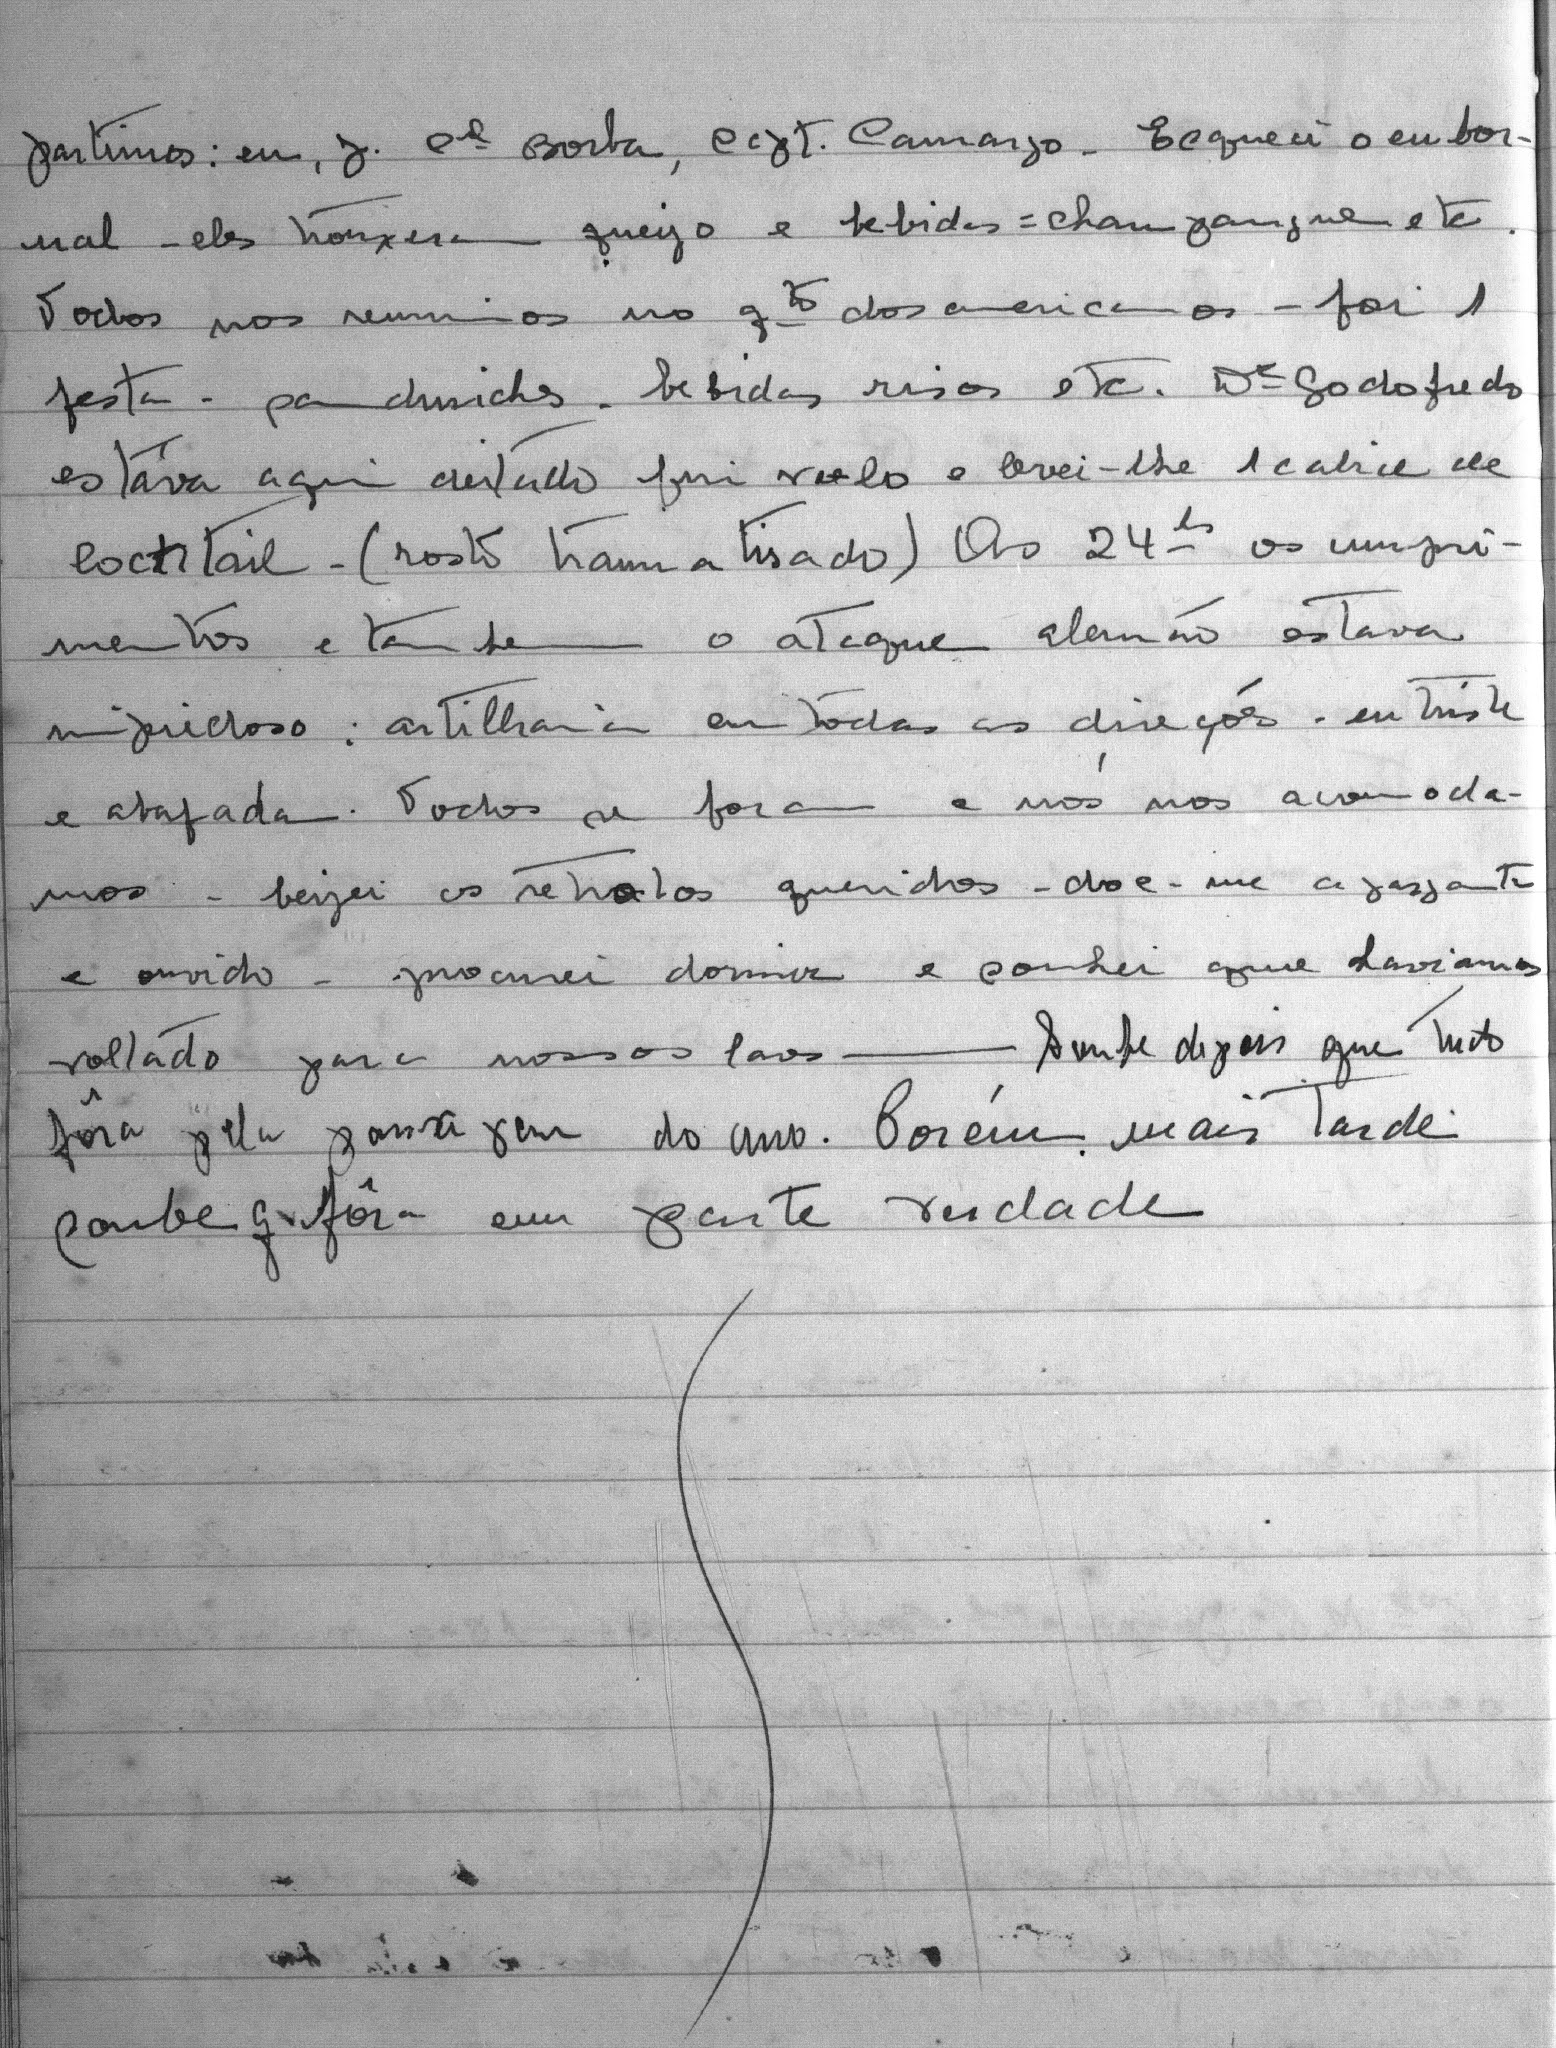 partimos: eu, J. Cel Borba, Capt. Camargo - Esqueci o embor-
nal - eles trouxeram queijo e bebidas = champangne etc.
Todos nos reunimos no qto dos americanos - foi 1
festa - sanduiches - bebidas risos etc. Dr Godofredo
estáva aqui deitado fui vêlo e levei-lhe 1 calice de
coctail - (rosto traumatisado) As 24 hs os cumpri-
mentos e tambem o ataque alemão estava
impiedoso : artilharia em todas as direções - eu triste
e abafada. Todos se foram e nós nos acomoda-
mos - beijei os retratos queridos - doe-me a garganta
e ouvido - procurei dormir e sonhei que haviamos
voltado para nossos lares — Soube depois que tudo
fôra pela passagem do ano. Porém mais tarde
soube q. fôra em parte verdade